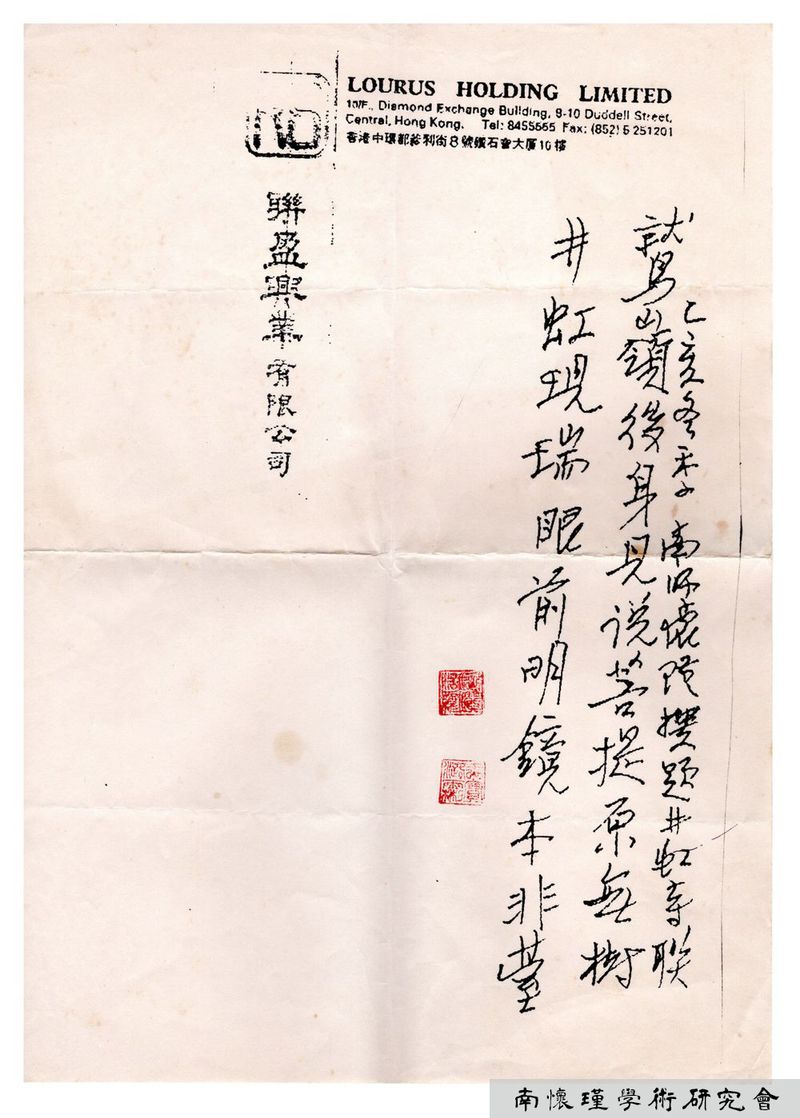 LOURUS HOLDING LIMITED
10/F., Diamond Exchange Building, 8-10 Duddell Street,
Central, Hong Kong. Tel: 8455555 Fax: (852) 5 251201
香港中環都爹利街8號鑽石會大厦10樓
聯盈興業有限公司
乙亥冬季南师懷瑾撰題井虹寺聯
鷲嶺後身見说菩提原無樹
井虹現瑞眼前明鏡本非臺
南懷瑾學術研究會